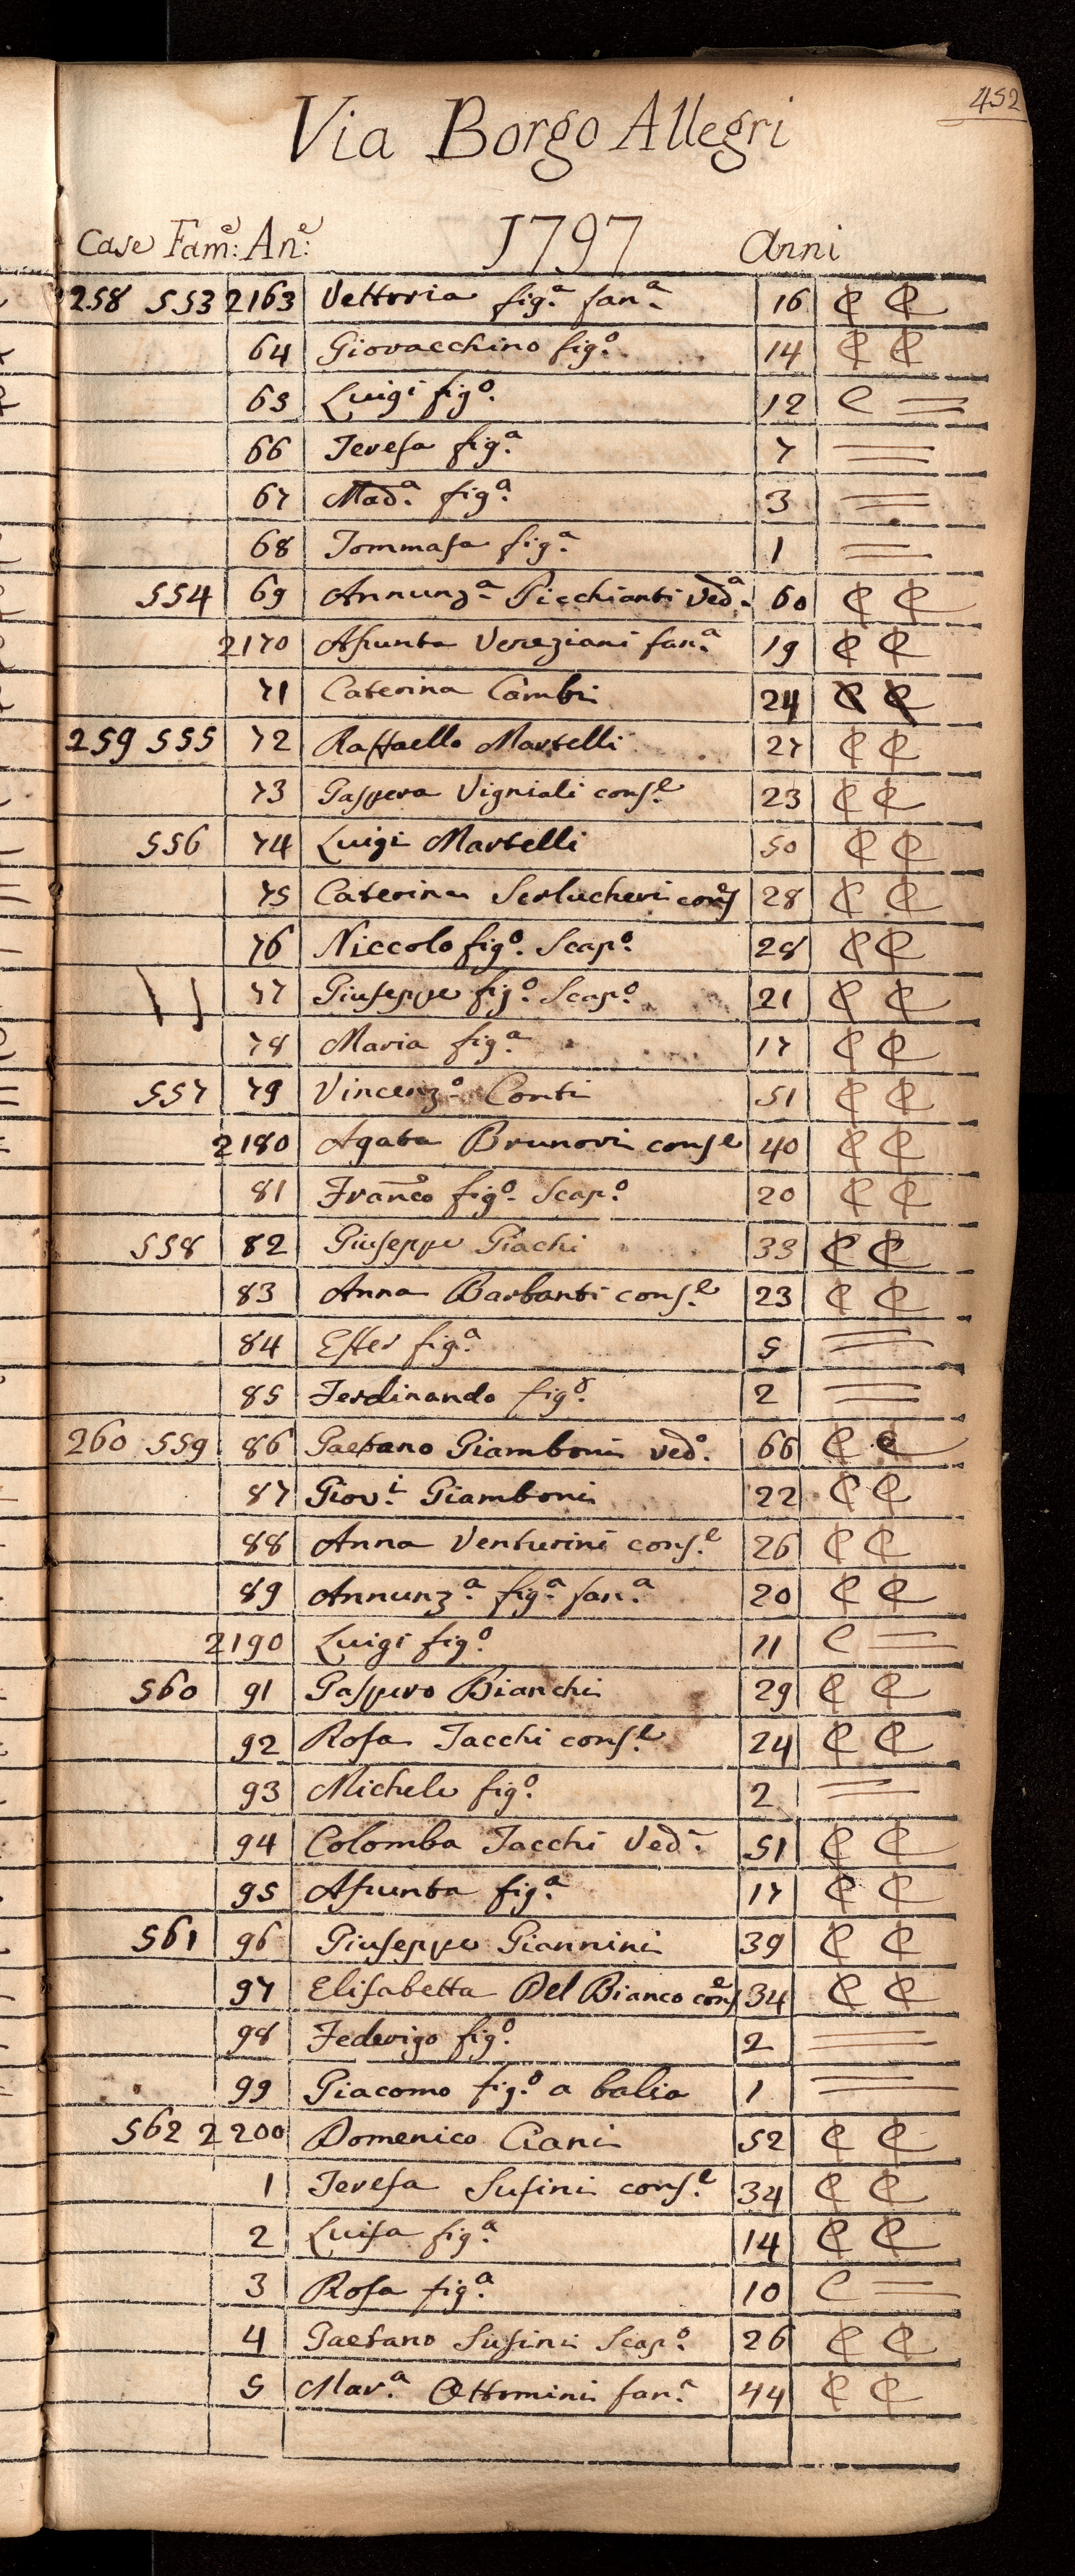 452
Via Borgo Allegri
Case Fam:e An:e 1797 Anni
258 553 2163 Vettoria fig.a fan.a 16 C C
64 Giovacchino fig.o 14 C C
65 Luigi fig.o 12 C =
66 Teresa fig.a 7 =
67 Mad.a fig.a 3 =
68 Tommasa fig.a 1 =
554 69 Annunz.a Picchianti Ved.a 60 C C
2170 Assunta Veneziani fan.a 19 C C
71 Caterina Cambi 24 C C
259 555 72 Raffaello Martelli 27 C C
73 Gaspera Vigniali cons.e 23 C C
556 74 Luigi Martelli 50 C C
75 Caterina Serlucheri cons.e 28 C C
76 Niccolo fig.o Scap.o 28 C C
77 Giuseppe fig.o Scap.o 21 C C
78 Maria fig.a 17 C C
557 79 Vincenz.o Conti 51 C C
2180 Agata Brunori conse 40 C C
81 Franco fig.o Scap.o 20 C C
558 82 Giuseppe Giachi 33 C C
83 Anna Barbanti cons.e 23 C C
84 Ester fig.a 5 =
85 Ferdinando fig.o 2 =
260 559 86 Gaetano Giamboni ved.o 66 C C
87 Giov.i Giamboni 22 C C
88 Anna Venturini cons.e 26 C C
89 Annunz.a fig.a fan.a 20 C C
2190 Luigi fig.o 11 C =
560 91 Gaspero Bianchi 29 C C
92 Rosa Tacchi cons.e 24 C C
93 Michele fig.o 2 =
94 Colomba Tacchi Ved.a 51 C C
95 Assunta fig.a 17 C C
561 96 Giuseppe Giannini 39 C C
97 Elisabetta Del Bianco cons.e 34 C C
98 Federigo fig.o 2 =
99 Giacomo fig.o a balia 1 =
562 2200 Domenico Ciani 52 C C
1 Teresa Susini cons.e 34 C C
2 Luisa fig.a 14 C C
3 Rosa fig.a 10 C =
4 Gaetano Susini Scap.o 26 C C
5 Mar.a Ottomini fan.a 44 C C